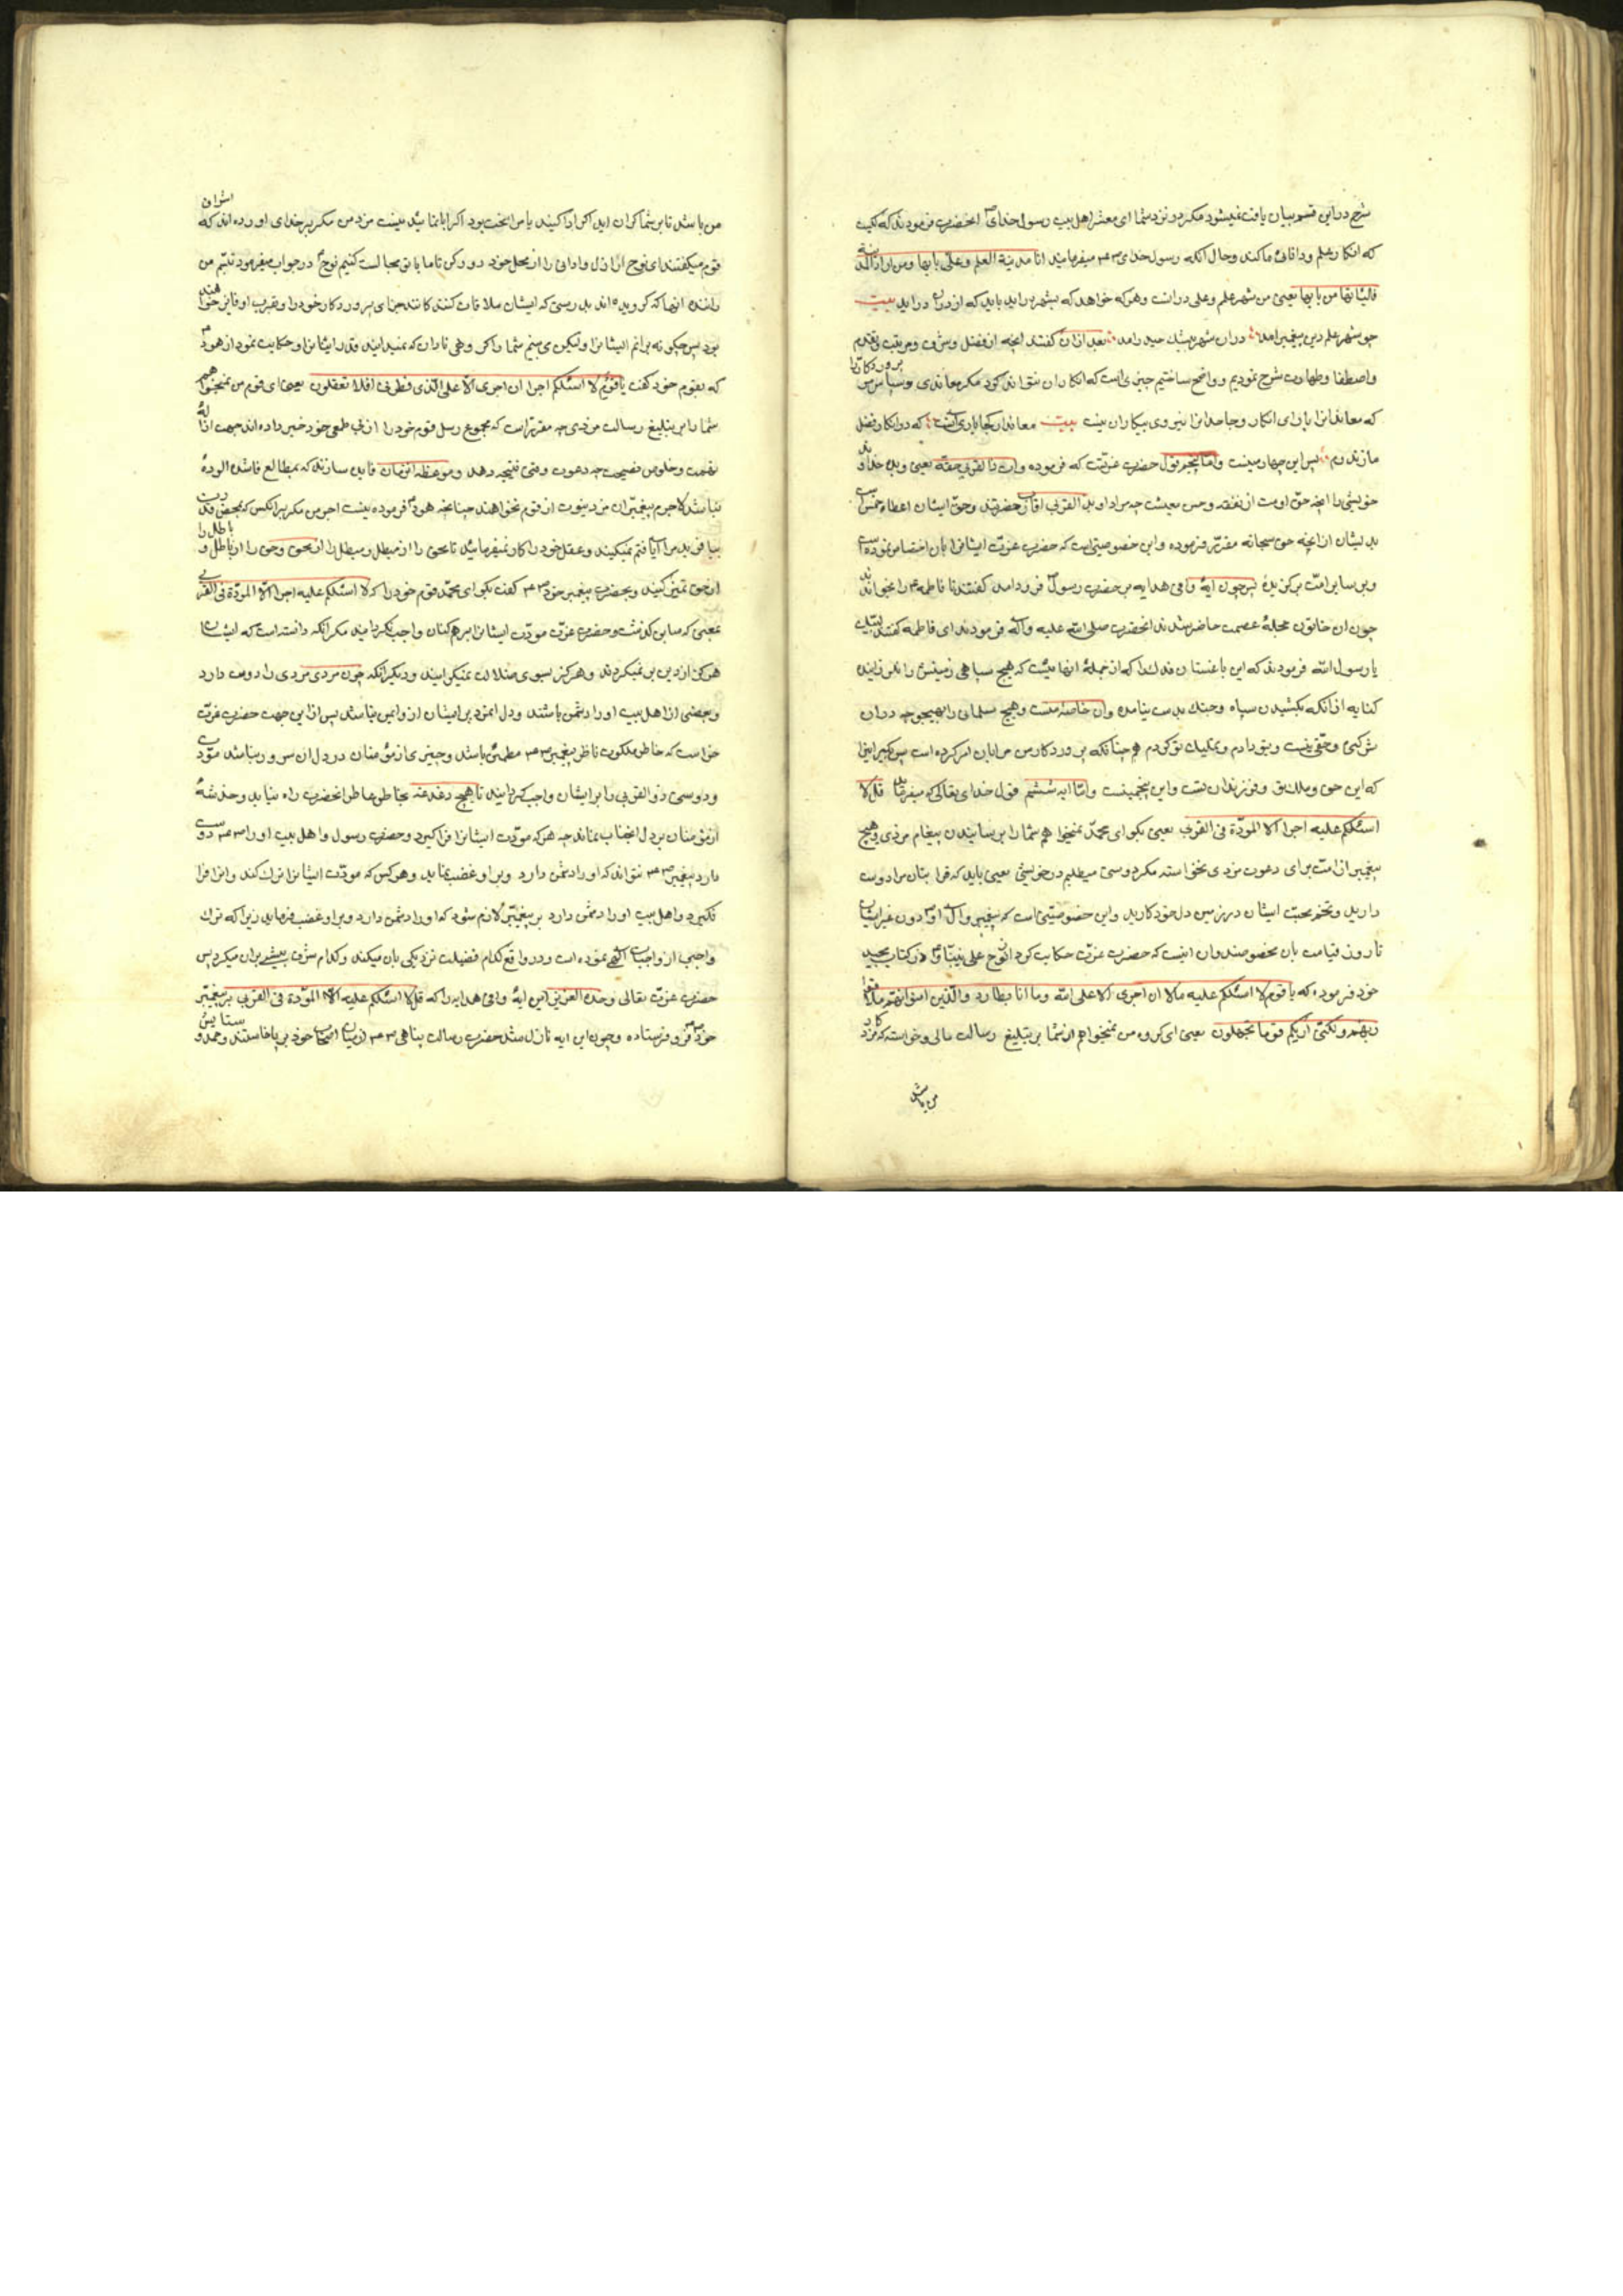 شرح در این قسم بیان یافت نمیشود مکر در نزد شما ای معشر اهل بیت رسول خدای انحضرت فرمودند که کیت
که انکار علم و دانائی ما کند و حال آنکه رسول خدای میفرمایند انا مدینة العلم و علی بابها و من اراد المدینة
فلیأتها من بابها یعنی من شهر علم و علی در انست و هر که خواهد که بشهر در اید باید که از در ان در اید بیت
چو شهر علم دین پیغمبر امد در ان شهر حیدر امد بعد از ان کفتند انچه از فضل و شرف و مرتبت و تقدم
و اصطفا و طهارت شرح نمودیم و واضح ساختیم چیزی است که انکار ان نتواند کرد مکر معاندی و سپاس مر پروردکار را
که معاندانرا یارای انکار و جاحدانرا نیروی پیکار ان نیست بیت معاندان کجا یارای انست که در انکار فضل
ما زند دم پس این چهارمینست و اما پنجم قول حضرت عزتست که فرموده و ات ذا القربی حقه یعنی و بده خداوند
خویشی را انچه حق اوست از نفقه و حسن معیشت چه مراد او بذا القربی اقارب حضرتند و حق ایشان اعطاء خمس است
بدیشان از انچه حق سبحانه مقرر فرموده و این خصوصیتی است که حضرت عزت ایشانرا بان اختصاص نموده است
و بر سایر امت برکزیده پس چون ایه وافی هدایه بر حضرت رسول فرود امد کفتند تا فاطمه را بخوانند
چون ان خاتون محجله عصمت حاضر شدند انحضرت صلی الله علیه و اله فرمودند ای فاطمه کفتند لبیک
یا رسول الله فرمودند که این باغستان فدک را که از جمله انها نیست که هیچ سپاهی زمینش را
کنایه از انکه بکشیدن سپاه و جنک بدست نیامده و ان خاصه منست و هیچ مسلمانی را بهیچوجه در ان
شرکتی و حقی نیست و بتو دادم و بملیک تو کردم هم چنانکه پروردکار من مرا بان امر کرده است پس بکیر انرا
که این حق و ملک تو و فرزندان تست و این پنجمینست و اما ایه ششم قول خدای تعالی که میفرماید قل لا
اسئلکم علیه اجرا الا المودة فی القربی یعنی بکو ای محمد نمیخواهم شما را برسانیدن پیغام مزدی و هیچ
پیغمبر از امت برای دعوت مزدی نخواسته مکر دوستی میطلبم در خویشی یعنی باید که قرابتان مرا دوست
دارید و تخم محبت ایشان در زمین دل خود کارید و این خصوصیتی است که پیغمبر و ال او دون غیر ایشان
تا روز قیامت بان مخصوصند و ان اینست که حضرت عزت حکایت کرد از نوح علی نبینا و در کتاب مجید
خود فرموده که یا قوم لا اسئلکم علیه مالا ان اجری الا علی الله و ما انا بطارد الذین امنوا انهم ملاقوا
ربهم ولکنی اریکم قوما تجهلون یعنی ای کروه من نمیخواهم از شما بر تبلیغ رسالت مالی و خواسته که مزد کار
من باشد
من باشد تا بر شما کران اید اکر ادا کنید یا مرا سخت بود اکر ابا نمائید نیست مزد من مکر بر خدای اورده اند که اشراف
قوم میکفتند ای نوح اراذل و ادانی را از محل خود دور کن تا ما با تو مجالست کنیم نوح در جواب میفرمود نیستم من
راننده انها که کرویده اند بدرستی که ایشان ملاقات کنندکانند جزای پروردکار خود را و بقرب او فایز خواهند
بود پس چکونه برانم ایشانرا و لیکن می بینم شما را کروهی نادان که نمیدانید قدر ایشانرا و حکایت نمود از هود
که بقوم خود کفت یا قوم لا اسئلکم اجرا ان اجری الا علی الذی فطرنی افلا تعقلون یعنی ای قوم من نمیخواهم
شما را بر تبلیغ رسالت مزدی چه مقرر است که مجموع رسل قوم خود را از بی طمعی خود خبر داده اند جهت ازاله
تهمت و خلوص نصیحت چه دعوت وقتی نتیجه دهد و موعظه انزمان فایده سازند که بمطالع فاسده الوده
نباشد لاجرم پیغمبران مزد نبوت از قوم نخواهند چنانچه هود فرموده نیست اجر من مکر بر انکس که بمحض قدرت
بیافرید مرا ایا فهم نمیکنید و عقل خود را کار نمیفرمائید تا محق را از مبطل و مبطل را از محق و حق را از باطل و باطل را
از حق تمیز کنید و بحضرت پیغمبر خود کفت بکو ای محمد قوم خود را که لا اسئلکم علیه اجرا الا المودة فی القربی
بمعنی که سابق کذشت و حضرت عزت مودت ایشانرا بر همکنان واجب نکردانید مکر آنکه دانسته است که ایشان
هرکز از دین بر نمیکردند و هرکز بسوی ضلالت نمیکرایند و دیکر انکه چون مردی مردی را دوست دارد
و بعضی از اهل بیت او را دشمن باشند و دل ایمزد بر ایشان از و ایمن نباشد پس از این جهت حضرت عزت
خواست که خاطر ملکوت ناظر پیغمبر مطمئن باشد و چیزی از مؤمنان در دل ان سرور نباشد مودت
و دوستی ذو القربی را بر ایشان واجب کردانید تا هیچ دغدغه بخاطر عاطر انحضرت راه نیابد و خدشهٔ
از مؤمنان بر دل انجناب نماند چه هر که مودت ایشانرا فرا کیرد و حضرت رسول و اهل بیت او را دوست
دارد پیغمبر نتواند که او را دشمن دارد و بر او غضب نماید و هر کس که مودت ایشانرا ترک کند و انرا فرا
نکیرد و اهل بیت او را دشمن دارد بر پیغمبر لازم شود که او را دشمن دارد و بر او غضب فرماید زیرا که ترک
واجبی از واجبات الهی نموده است و در واقع کدام فضیلت نزدیکی بان میکند و کدام شرف پیشی بران میکیرد پس
حضرت عزت تعالی و جده العزیز این ایهٔ وافی هدایه را که قل لا اسئلکم علیه الا المودة فی القربی بر پیغمبر
خود فرو فرستاده و چون این ایه نازل شد حضرت رسالت پناهی در میان اصحاب خود بر پا خاستند و حمد و ستایش